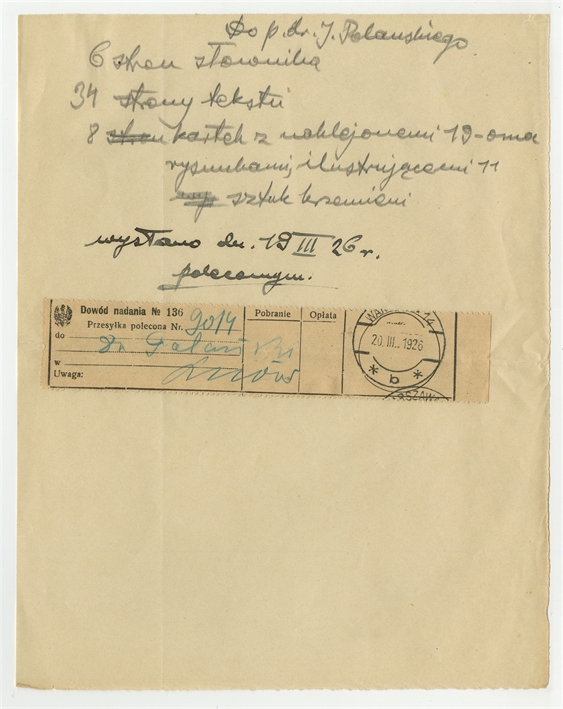 Do p. dr. J. Polanskiego
6 stron słownika
34 strony tekstu
8 stron kartek z naklejonemi 19-oma
rysunkami, ilustrującemi 11
sztuk krzemieni
wysłano dn. 19 III 26 r.
poleconym.
Dowód nadania № 136
Przesyłka polecona Nr. 9014
do Dr Polański
w Lwów
Uwaga:
Pobranie
Opłata
20.III..1926
* b *